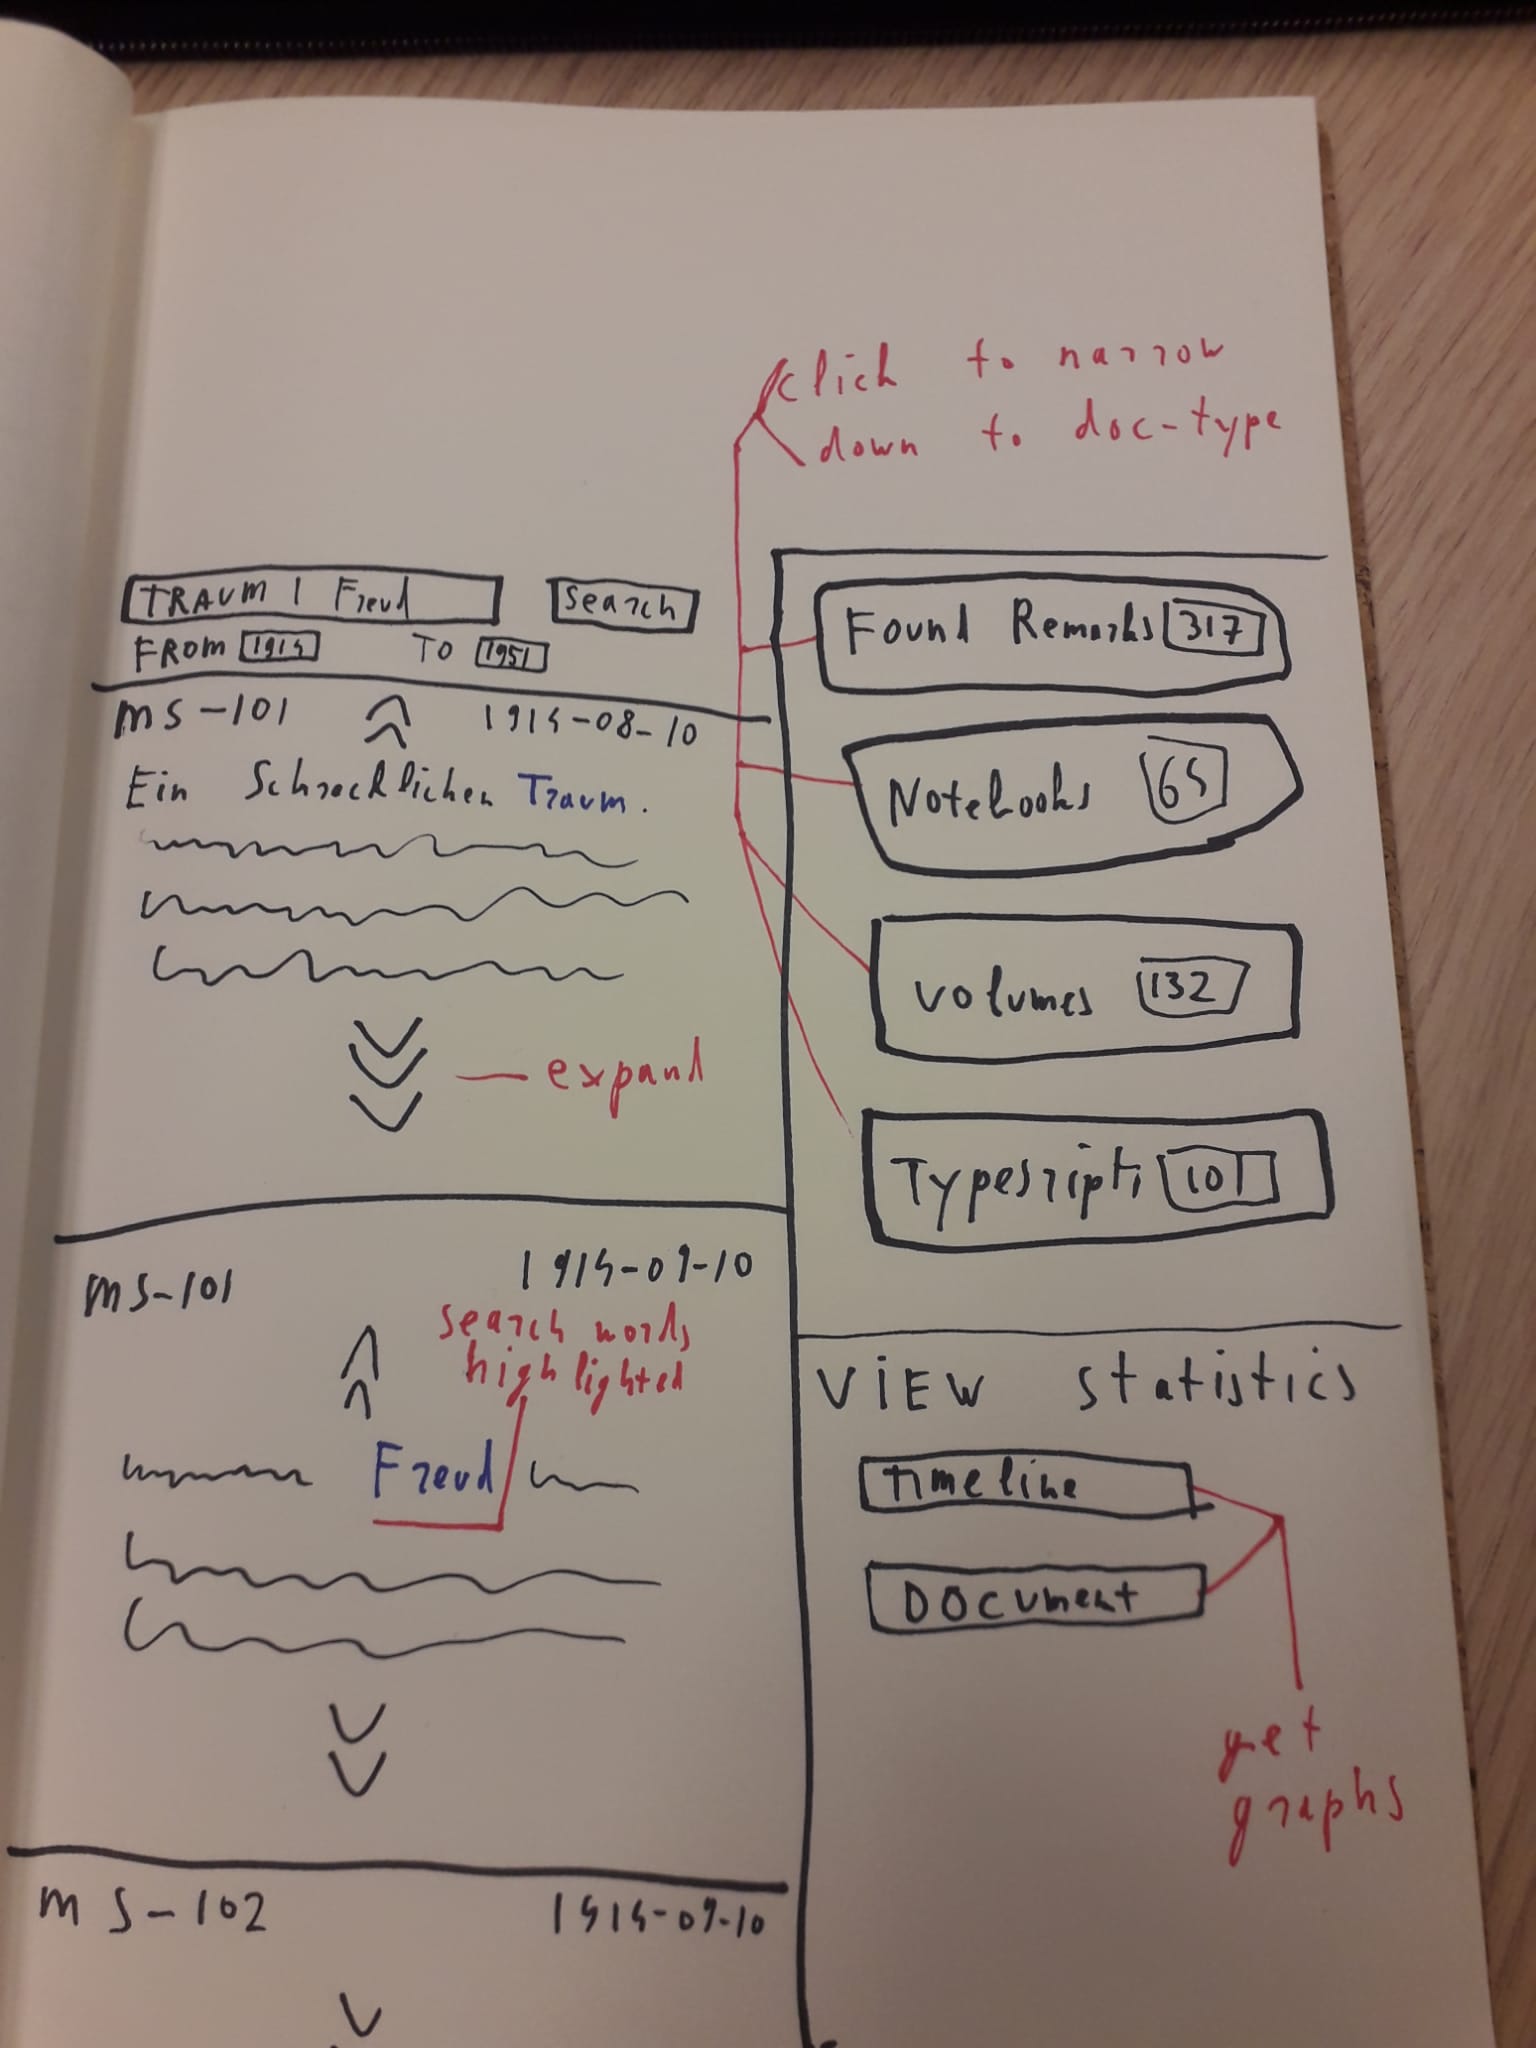 click to narrow
down to doc-type
TRAUM | Freud
Search
FROM 1914
TO 1951
MS-101
1914-08-10
Ein Schrecklichen Traum.
expand
MS-101
1914-09-10
search words
highlighted
Freud
MS-102
1914-09-10
Found Remarks 317
Notebooks 64
Volumes 132
Typescripts 101
VIEW statistics
timeline
DOCUMENT
get
graphs